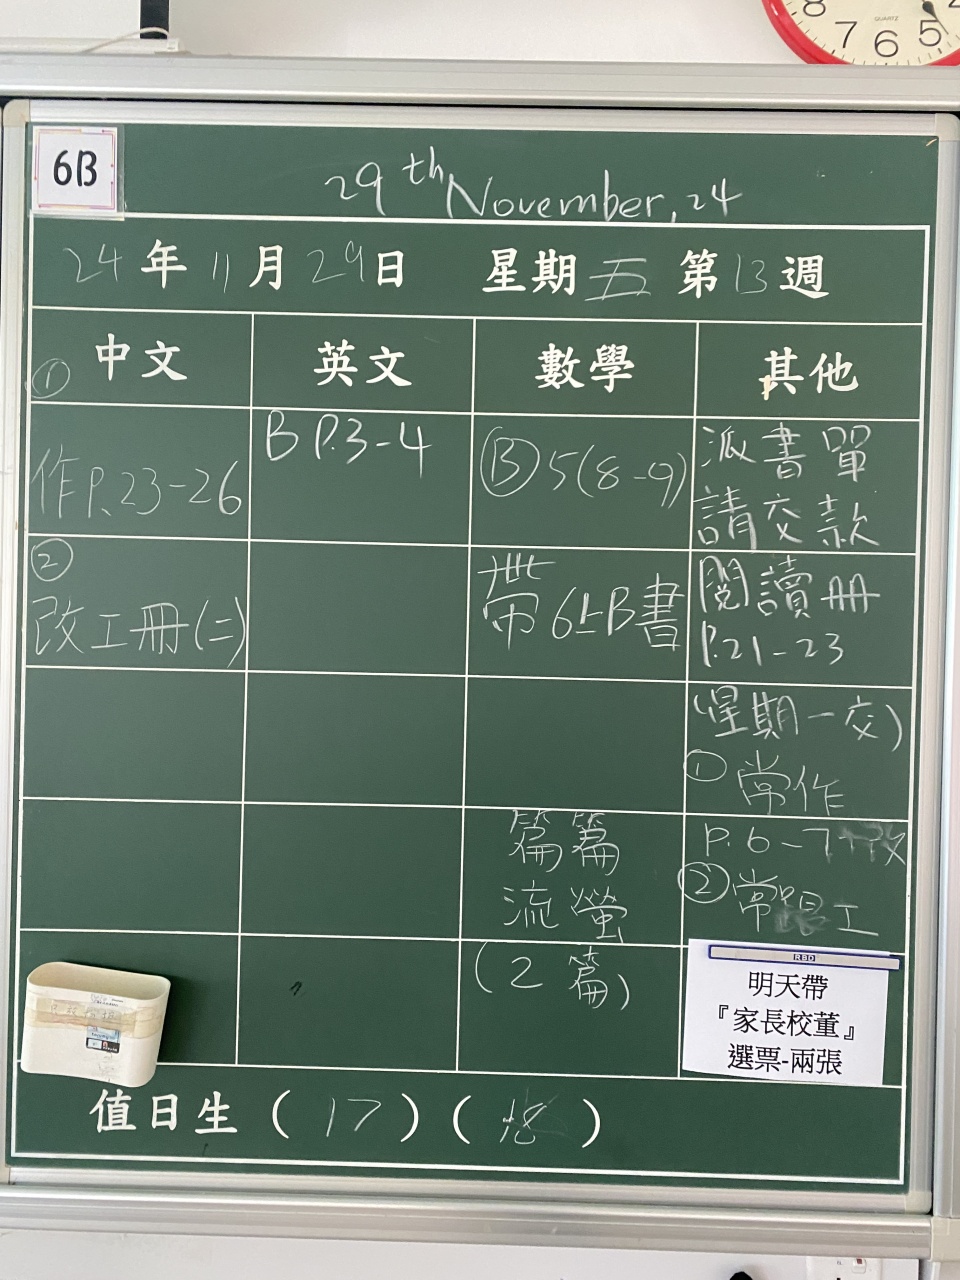 8 7 6 5
QUARTZ
6B
29th November, 24
24年11月29日 星期五 第13週
中文 英文 數學 其他
①
作P.23-26
②
改工冊(二)
B P.3-4
Ⓑ5(8-9)
帶6上B書
篇篇
流螢
(2篇)
派書單
請交款
閱讀冊
P.21-23
(星期一交)
①常作
P.6-7改
②常工
RBD
明天帶
『家長校董』
選票-兩張
值日生(17)( )